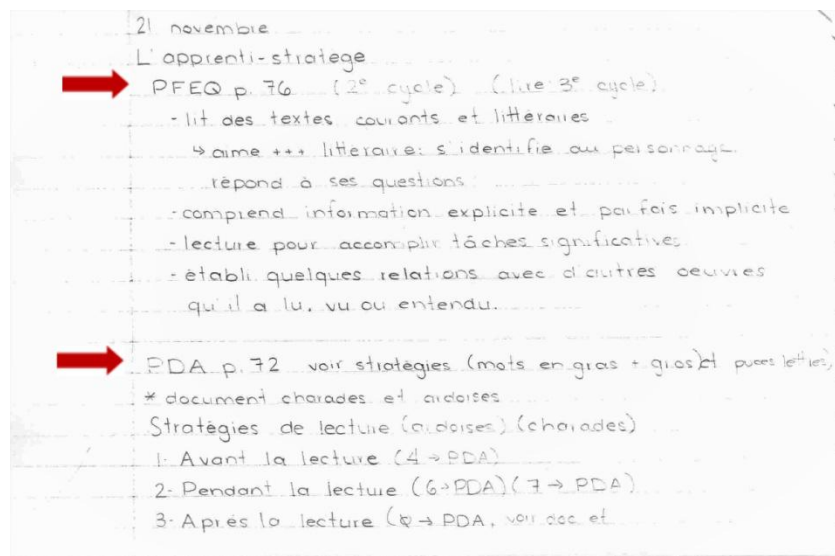 21 novembre
L'apprenti-stratège
PFEQ p. 76 (2e cycle) (lire 3e cycle)
- lit des textes courants et littéraires
↳ aime +++ littéraire: s'identifie au personnage.
répond à ses questions
- comprend information explicite et parfois implicite
- lecture pour accomplir tâches significatives
- établi quelques relations avec d'autres oeuvres
qu'il a lu, vu ou entendu.
PDA p. 72 voir stratégies (mots en gras + gros) et puces lettres)
* document charades et ardoises
Stratégies de lecture (ardoises) (charades)
1- Avant la lecture (4 → PDA)
2- Pendant la lecture (6 → PDA) (7 → PDA)
3- Après la lecture ( → PDA, voir doc et